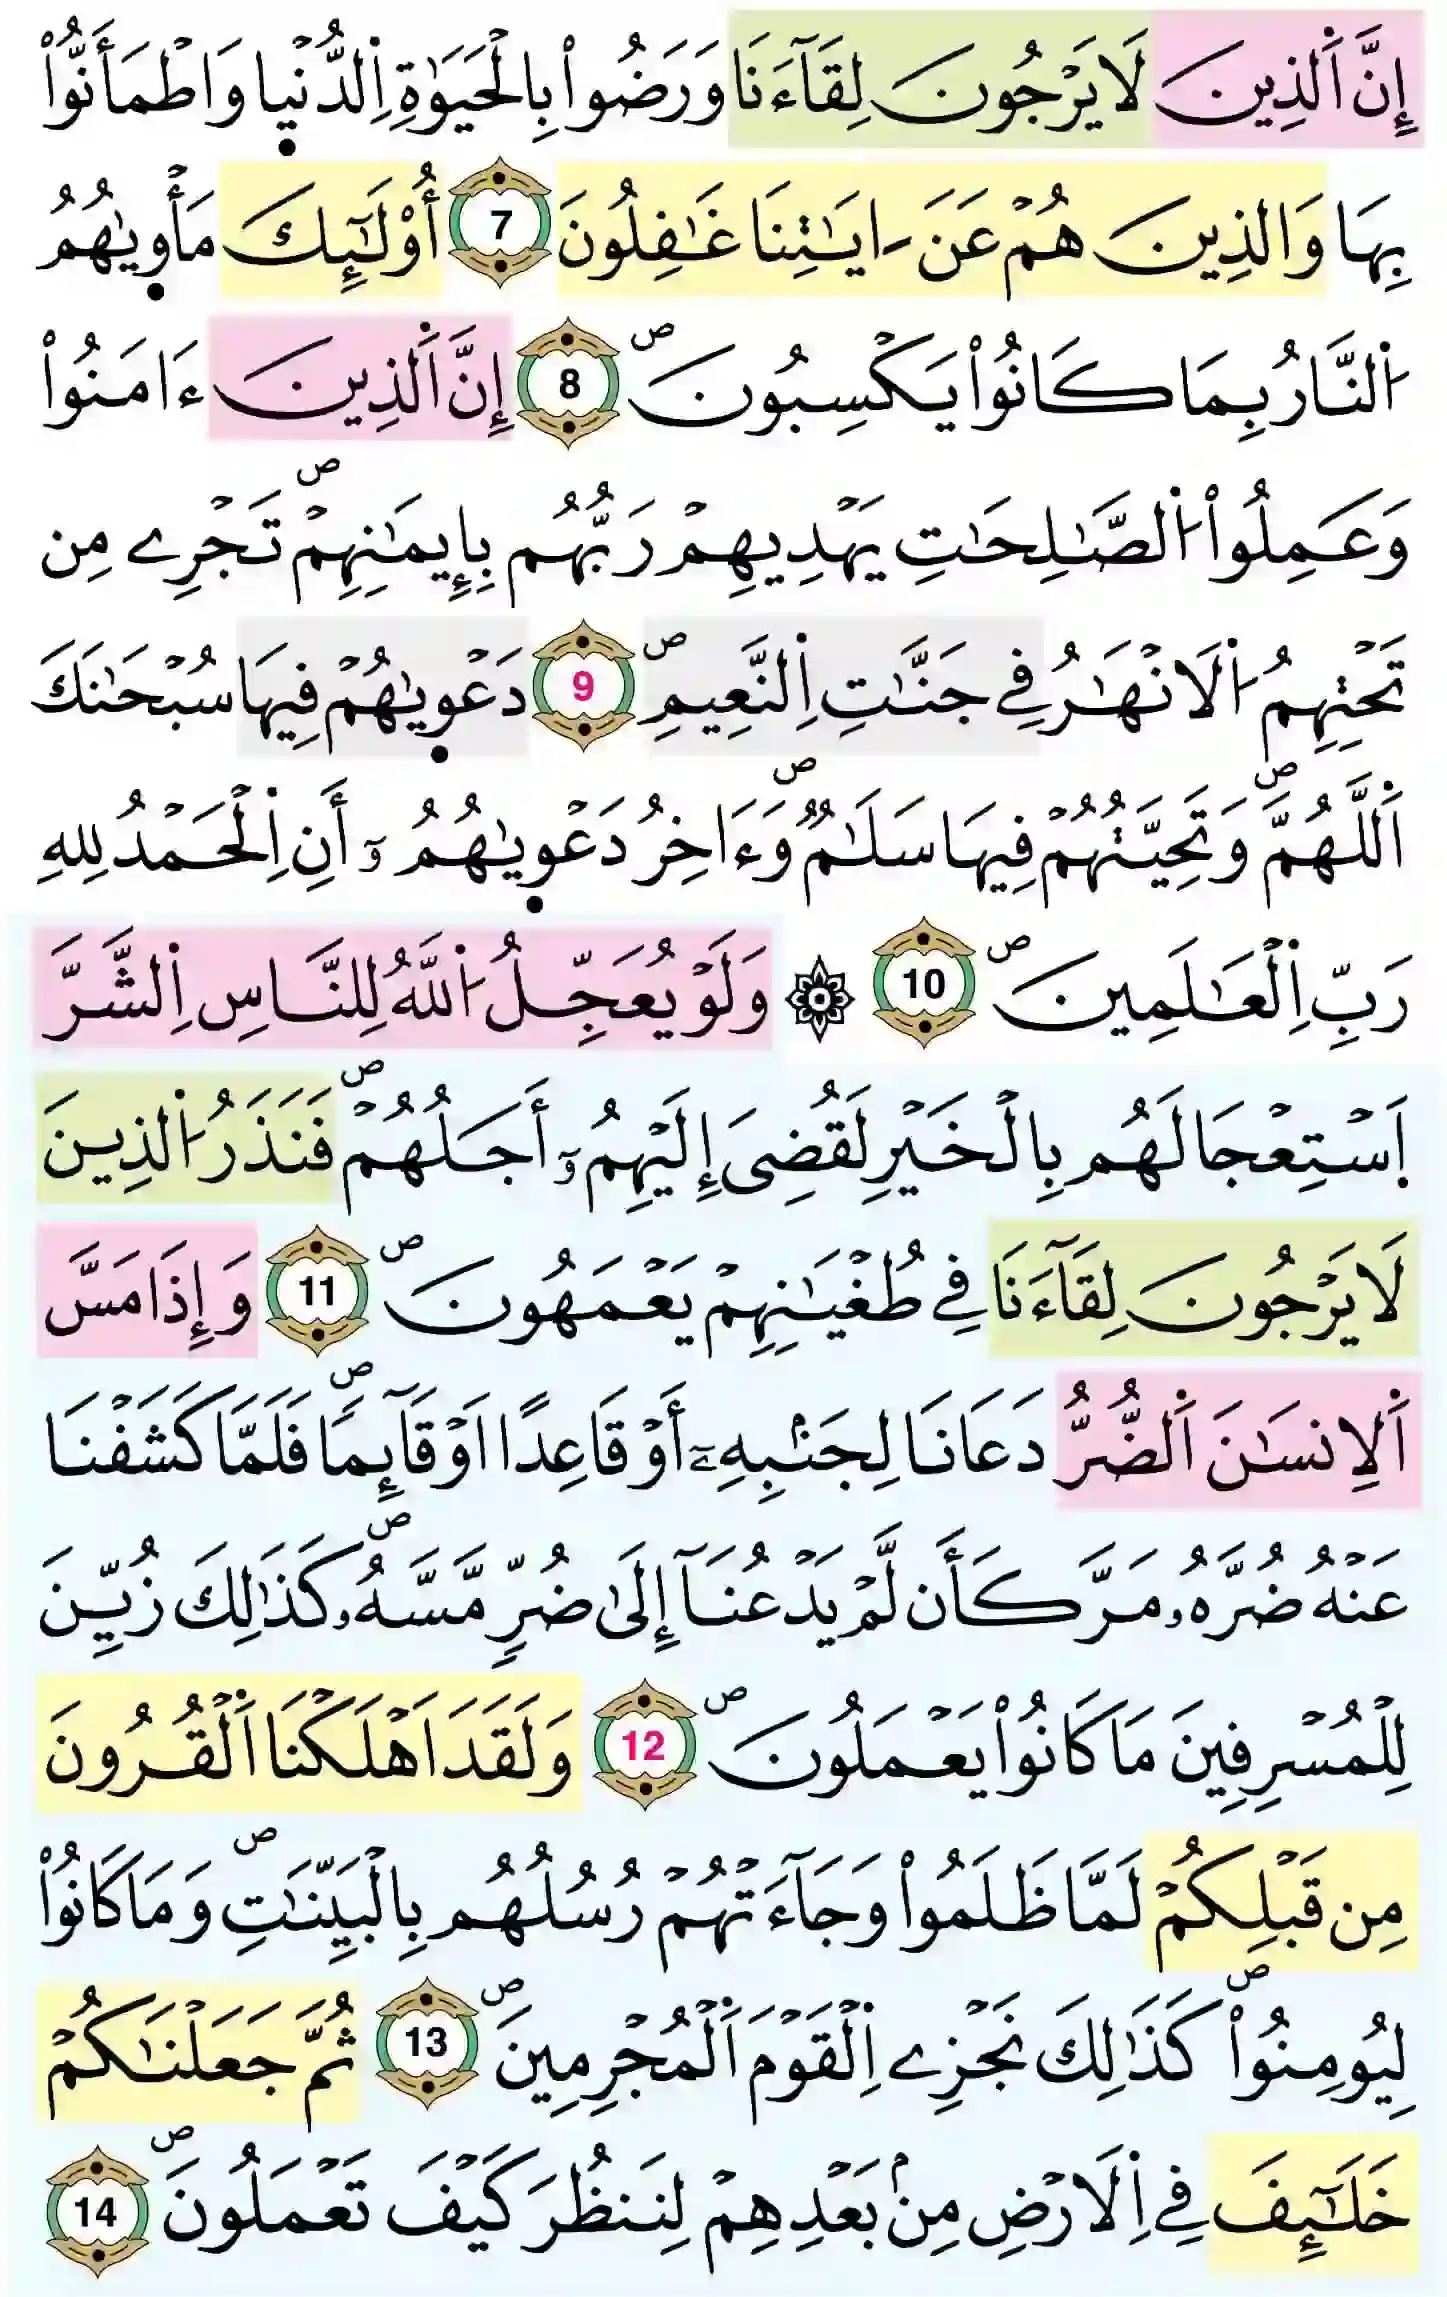 إِنَّ اَ۬لذِينَ لَا يَرْجُونَ لِقَآءَنَا وَرَضُواْ بِالْحَيَوٰةِ اِ۬لدُّنْي۪ا وَاطْمَأَنُّواْ
بِهَا وَالذِينَ هُمْ عَنَ اٰيَٰتِنَا غَٰفِلُونَ 7 أُوْلَٰٓئِكَ مَأْو۪يٰهُمُ
اُ۬لنَّارُ بِمَا كَانُواْ يَكْسِبُونَۖ 8 إِنَّ اَ۬لذِينَ ءَامَنُواْ
وَعَمِلُواْ اُ۬لصَّٰلِحَٰتِ يَهْدِيهِمْ رَبُّهُم بِإِيمَٰنِهِمْۖ تَجْرِے مِن
تَحْتِهِمُ اُ۬لَانْهَٰرُ فِے جَنَّٰتِ اِ۬لنَّعِيمِۖ 9 دَعْو۪يٰهُمْ فِيهَا سُبْحَٰنَكَ
اَ۬للَّهُمَّۖ وَتَحِيَّتُهُمْ فِيهَا سَلَٰمٞۖ وَءَاخِرُ دَعْو۪يٰهُمُۥٓ أَنِ اِ۬لْحَمْدُ لِلهِ
رَبِّ اِ۬لْعَٰلَمِينَۖ 10 ۞ وَلَوْ يُعَجِّلُ اُ۬للَّهُ لِلنَّاسِ اِ۬لشَّرَّ
اَ۪سْتِعْجَالَهُم بِالْخَيْرِ لَقُضِيَ إِلَيْهِمُۥٓ أَجَلُهُمْۖ فَنَذَرُ اُ۬لذِينَ
لَا يَرْجُونَ لِقَآءَنَا فِے طُغْيَٰنِهِمْ يَعْمَهُونَۖ 11 وَإِذَا مَسَّ
اَ۬لِانسَٰنَ اَ۬لضُّرُّ دَعَانَا لِجَنۢبِهِۦٓ أَوْ قَاعِداً اَوْ قَآئِماٗۖ فَلَمَّا كَشَفْنَا
عَنْهُ ضُرَّهُۥ مَرَّ كَأَن لَّمْ يَدْعُنَآ إِلَىٰ ضُرّٖ مَّسَّهُۥۖ كَذَٰلِكَ زُيِّنَ
لِلْمُسْرِفِينَ مَا كَانُواْ يَعْمَلُونَۖ 12 وَلَقَدَ اَهْلَكْنَا اَ۬لْقُرُونَ
مِن قَبْلِكُمْ لَمَّا ظَلَمُواْ وَجَآءَتْهُمْ رُسُلُهُم بِالْبَيِّنَٰتِۖ وَمَا كَانُواْ
لِيُومِنُواْۖ كَذَٰلِكَ نَجْزِے اِ۬لْقَوْمَ اَ۬لْمُجْرِمِينَۖ 13 ثُمَّ جَعَلْنَٰكُمْ
خَلَٰٓئِفَ فِے اِ۬لَارْضِ مِنۢ بَعْدِهِمْ لِنَنظُرَ كَيْفَ تَعْمَلُونَۖ 14